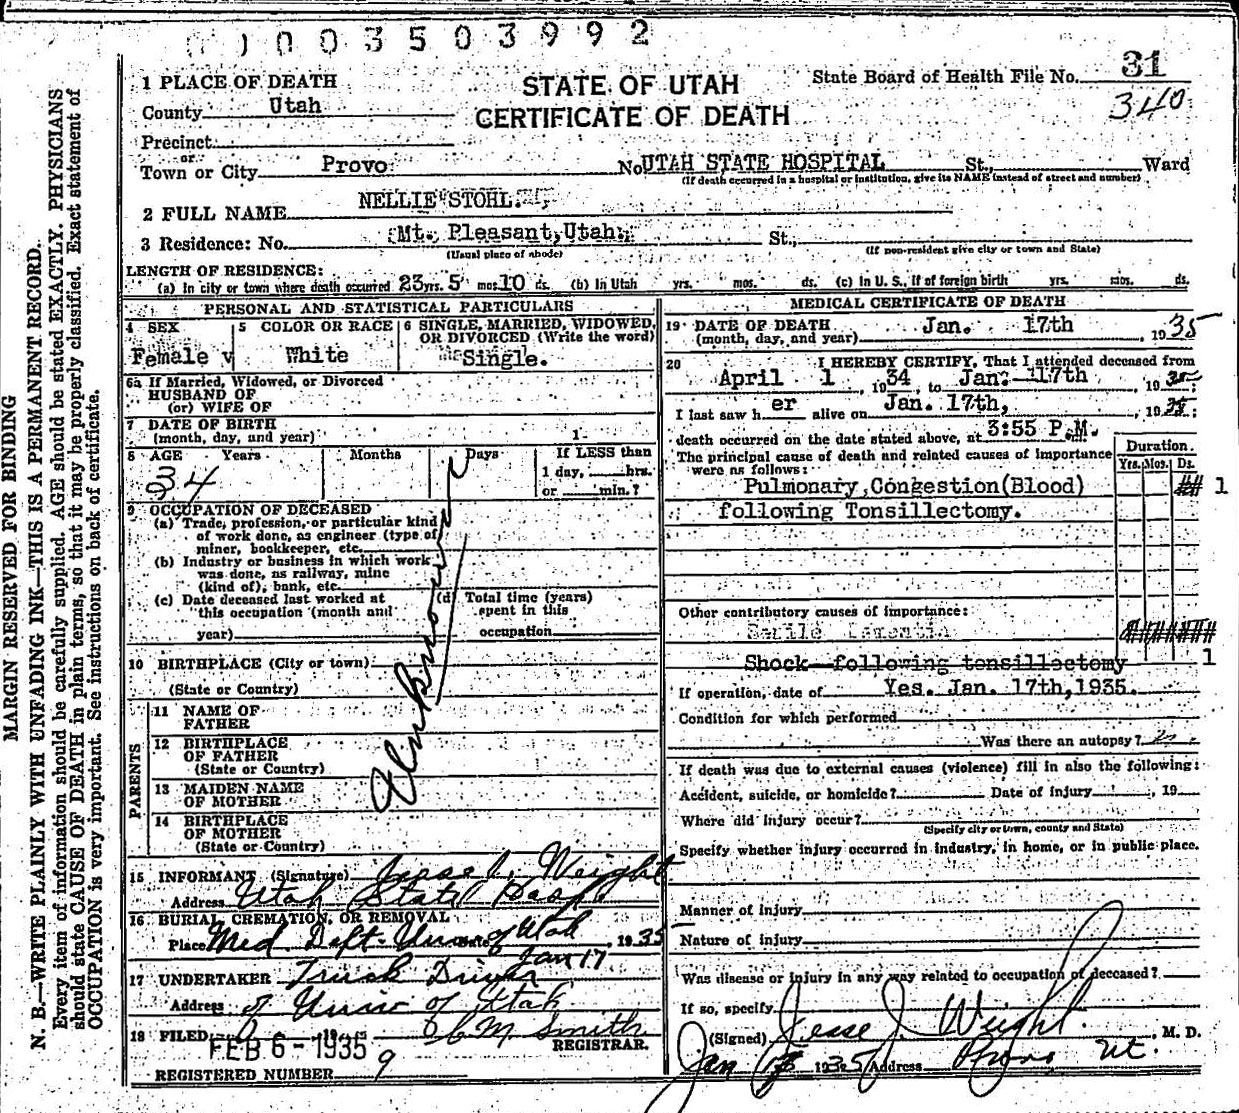 0 1 0 0 3 5 0 3 9 9 2
STATE OF UTAH
CERTIFICATE OF DEATH
State Board of Health File No. 31
340
1 PLACE OF DEATH
County Utah
Precinct
or
Town or City Provo No UTAH STATE HOSPITAL St., Ward
(If death occurred in a hospital or institution, give its NAME instead of street and number)
2 FULL NAME NELLIE STOHL.
3 Residence: No. Mt. Pleasant, Utah. St.,
(Usual place of abode) (If non-resident give city or town and State)
LENGTH OF RESIDENCE:
(a) In city or town where death occurred 23 yrs. 5 mos. 10 ds. (b) In Utah yrs. mos. ds. (c) In U. S., if of foreign birth yrs. mos. ds.
PERSONAL AND STATISTICAL PARTICULARS
4 SEX
Female
5 COLOR OR RACE
White
6 SINGLE, MARRIED, WIDOWED, OR DIVORCED (Write the word)
Single.
6a If Married, Widowed, or Divorced
HUSBAND OF
(or) WIFE OF
7 DATE OF BIRTH
(month, day, and year)
8 AGE Years Months Days If LESS than
1 day, hrs.
or min.?
34
9 OCCUPATION OF DECEASED
(a) Trade, profession, or particular kind
of work done, as engineer (type of)
miner, bookkeeper, etc.
(b) Industry or business in which work
was done, as railway, mine
(kind of), bank, etc.
(c) Date deceased last worked at
this occupation (month and
year)
(d) Total time (years)
spent in this
occupation
Unknown
10 BIRTHPLACE (City or town)
(State or Country)
PARENTS
11 NAME OF
FATHER
12 BIRTHPLACE
OF FATHER
(State or Country)
13 MAIDEN NAME
OF MOTHER
14 BIRTHPLACE
OF MOTHER
(State or Country)
15 INFORMANT (Signature) Jesse J. Weight
Address Utah State Hosp
16 BURIAL, CREMATION, OR REMOVAL
Place Med Dept. Univ of Utah 1935
Jan 17
17 UNDERTAKER Truck Driver
Address of Univ of Utah
18 FILED 19 M Smith
FEB 6 - 1935 REGISTRAR.
REGISTERED NUMBER 9
MEDICAL CERTIFICATE OF DEATH
19 DATE OF DEATH Jan. 17th
(month, day, and year) , 1935
20 I HEREBY CERTIFY, That I attended deceased from
April 1 1934 to Jan. 17th , 1935
I last saw her alive on Jan. 17th, , 1935;
death occurred on the date stated above, at 3:55 P.M. m.
The principal cause of death and related causes of importance
were as follows:
Duration
Yrs. Mos. Ds.
Pulmonary Congestion(Blood) ## 1
following Tonsillectomy.
Other contributory causes of importance:
Shock following tonsillectomy 1
If operation, date of Yes. Jan. 17th,1935.
Condition for which performed
Was there an autopsy?
If death was due to external causes (violence) fill in also the following:
Accident, suicide, or homicide? Date of injury , 19
Where did injury occur?
(Specify city or town, county and State)
Specify whether injury occurred in industry, in home, or in public place.
Manner of injury
Nature of injury
Was disease or injury in any way related to occupation of deceased?
If so, specify
(Signed) Jesse J. Weight M. D.
Jan 17 1935 Address Provo Ut.
MARGIN RESERVED FOR BINDING
N. B.—WRITE PLAINLY WITH UNFADING INK—THIS IS A PERMANENT RECORD.
Every item of information should be carefully supplied. AGE should be stated EXACTLY. PHYSICIANS
should state CAUSE OF DEATH in plain terms, so that it may be properly classified. Exact statement of
OCCUPATION is very important. See instructions on back of certificate.